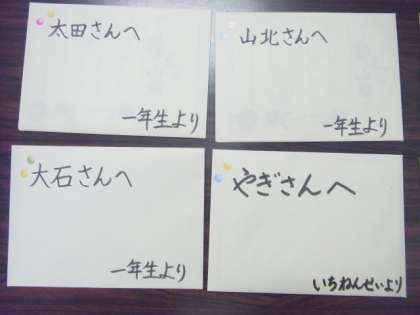 太田さんへ
一年生より
山北さんへ
一年生より
大石さんへ
一年生より
やぎさんへ
いちねんせいより